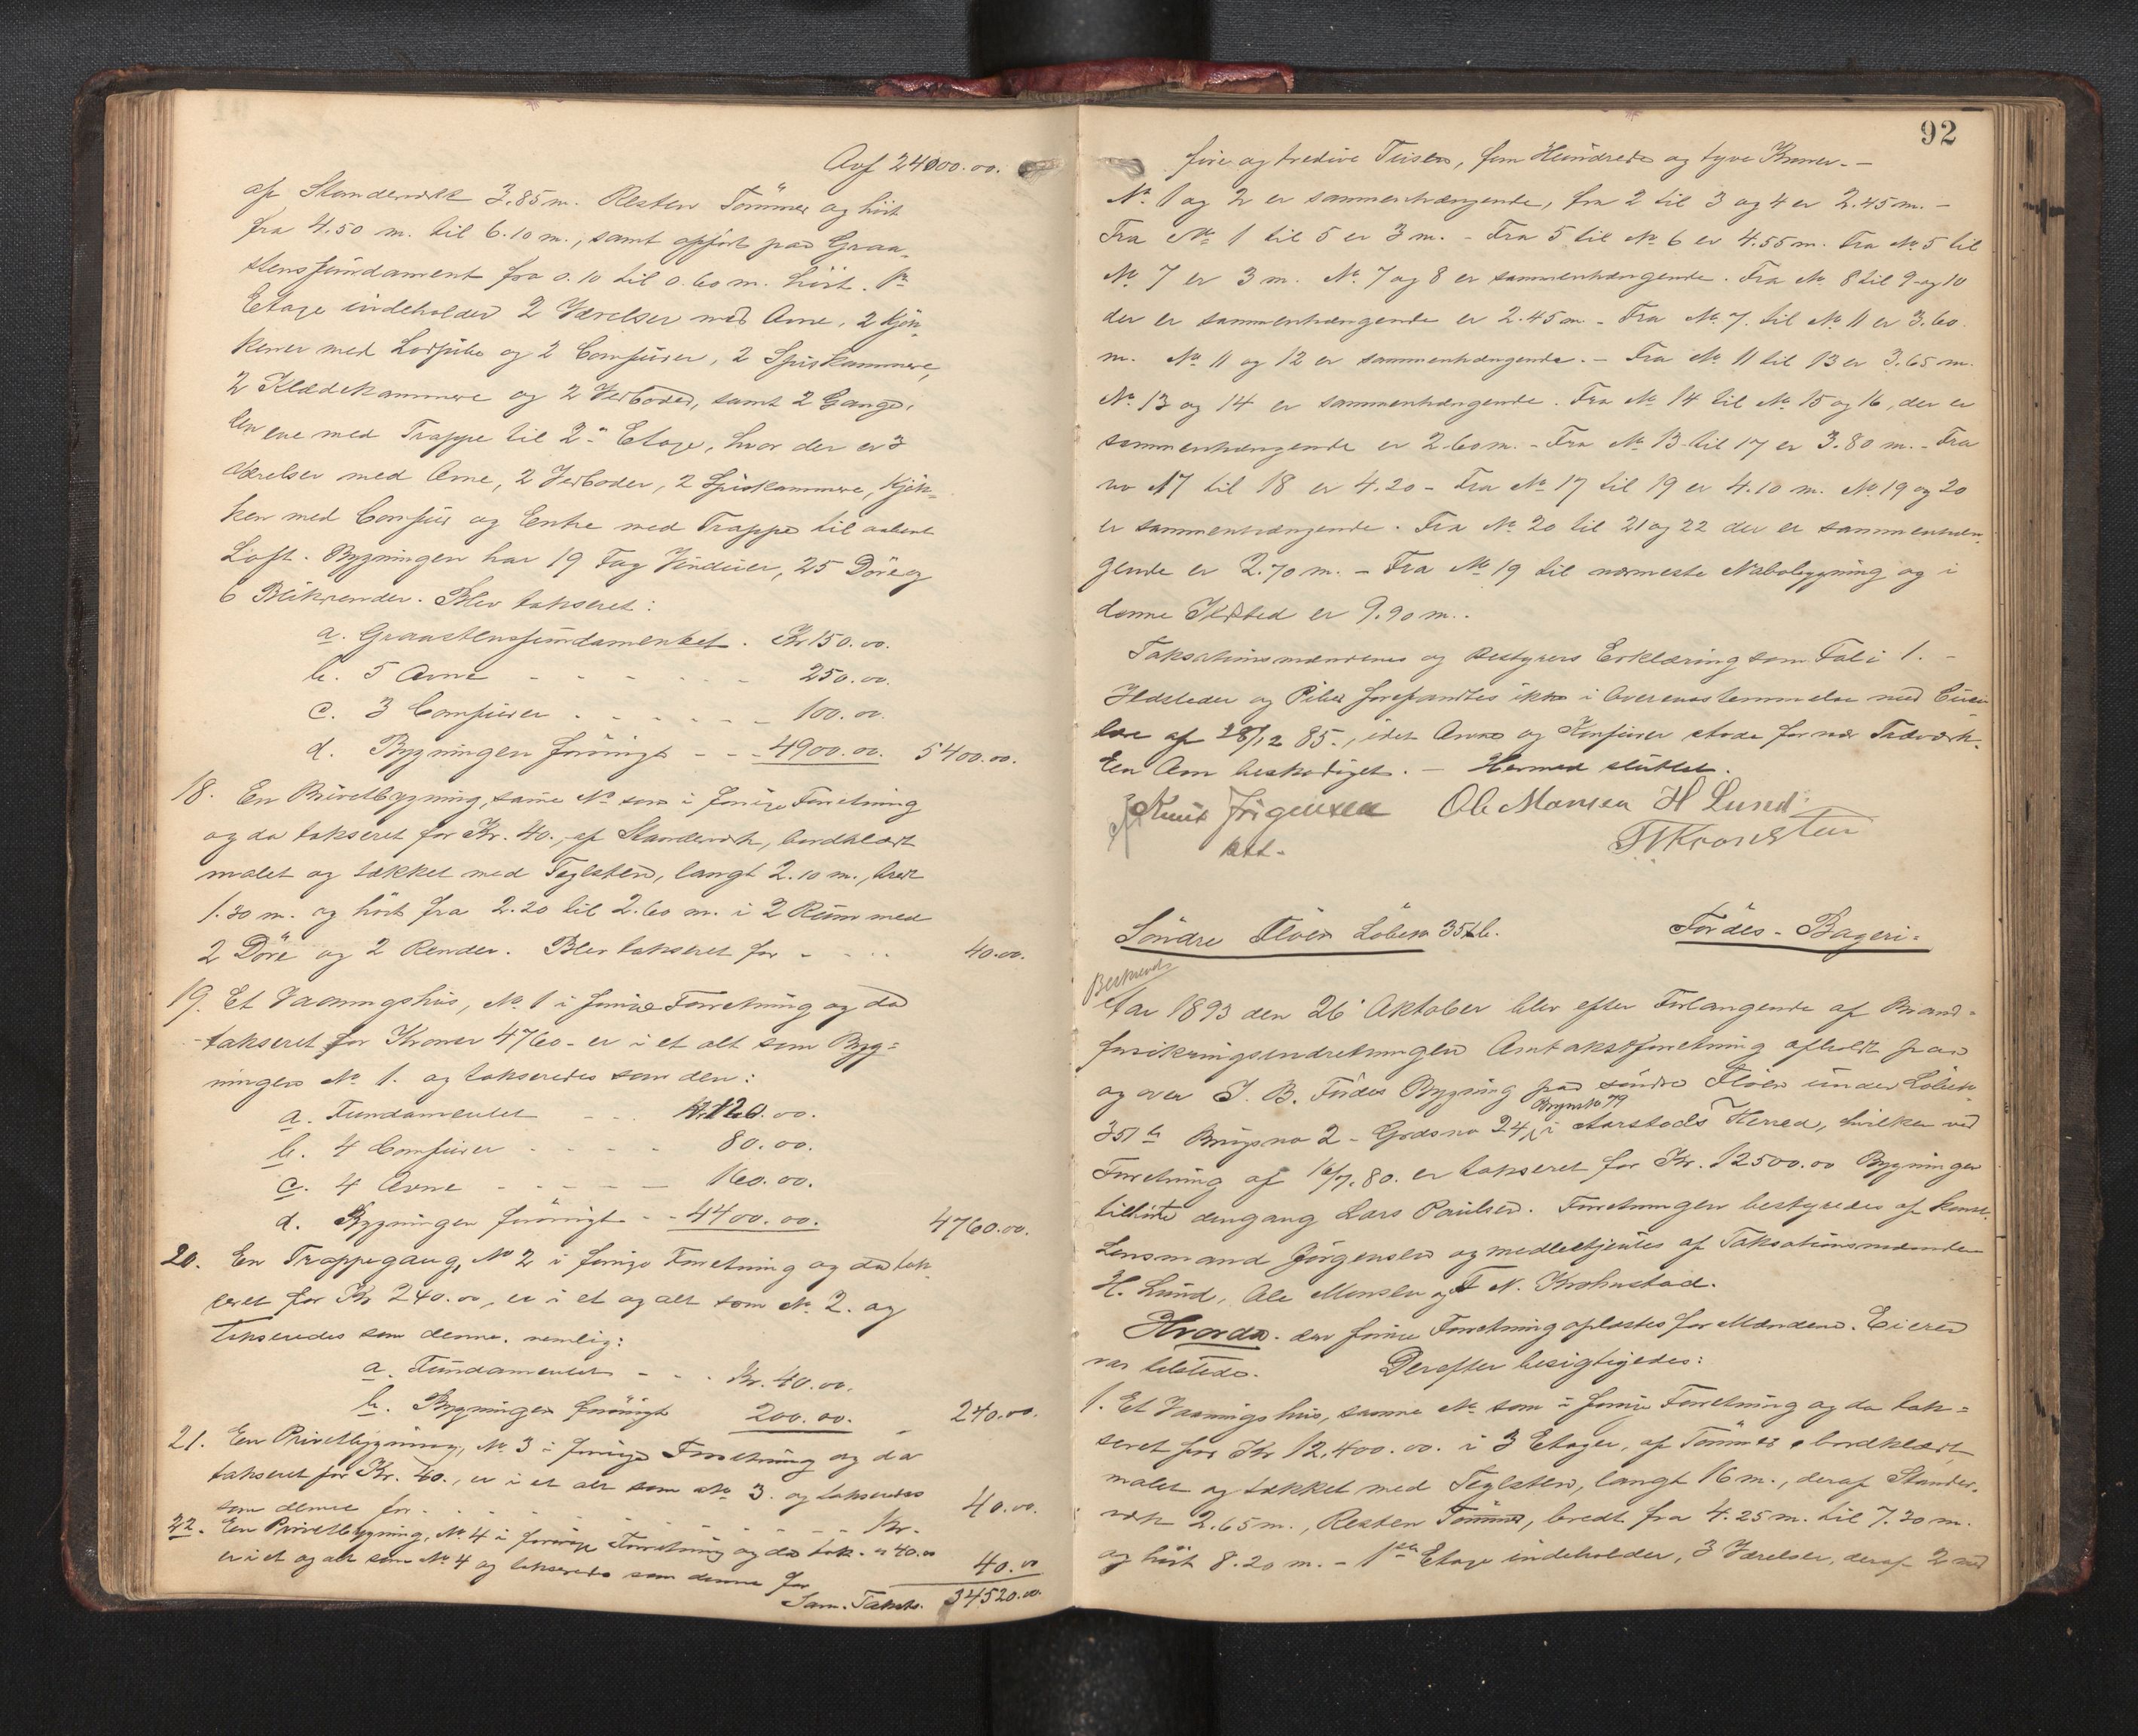 Ovf 24000.00.
af Standerverk 3.85 m. Resten Tømmer og høit
fra 4.50 m. til 6.10 m., samt opført paa Graa-
stensfundament fra 0.10 til 0.60 m. høit. 1ste
Etage indeholder 2 Værelser med Arne, 2 Kjøk-
kener med og 2 Comfurer, 2 Spiskammere,
2 Klædekammere og 2 Vedboder, samt 2 Gange,
den ene med Trappe til 2den Etage, hvor der er 3
Værelser med Arne, 2 Vedboder, 2 Spiskammere, Kjøk-
ken med Comfur og Entre med Trappe til aabent
Loft. Bygningen har 19 Fag Vinduer, 25 Døre og
6 Blikrender. Blev takseret:
a. Graastensfundamentet . Kr 150.00.
b. 5 Arne - - - - - - 250.00.
c. 3 Comfurer . - - - - - 100.00.
d. Bygningen forøvrigt - - - 4900.00. 5400.00.
18. En Privetbygning, samme No som i forrige Forretning
og da takseret for Kr. 40., af Standerverk, bordklædt
malet og tækket med Teglsten, langt 2.10 m., bredt
1.30 m. og høit fra 2.20 til 2.60 m. i 2 Rum med
2 Døre og 2 Render. Blev takseret for - - .. 40.00.
19. Et Vaaningshus, No 1 i forrige Forretning og da
takseret for Kroner 4760 - er i et alt som Byg-
ningen No 1. og takseredes som den:
a. Fundamentet - - . Kr 120.00.
b. 4 Comfurer - - - - 80.00.
c. 4 Arne - - - - - 160.00.
d. Bygningen forøvrigt - - 4400.00. 4760.00.
20. En Trappegang, No 2 i forrige Forretning og da tak-
seret for Kr 240.00, er i et og alt som No 2. og
takseredes som denne. nemlig:
a. Fundamentet - - . Kr. 40.00.
b. Bygningen forøvrigt 200.00. 240.00.
21. En Privetbygning, No 3 i forrige Forretning og da
takseret for Kr. 40., er i et alt som No 3. og takseredes
som denne for . . . . . . . - - - Kr. 40.00.
22. En Privetbygning, No 4 i forrige Forretning og da tak. 40.00
er i et og alt som No 4 og takseredes som denne for 40.00
Sam. Takst. 34520.00.
92
fire og tredive Tusen, fem Hundrede og tyve Kroner. -
No 1 og 2 er sammenhængende, fra 2 til 3 og 4 er 2.45 m. -
Fra No 1 til 5 er 3 m. - Fra 5 til No 6 er 4.55 m. Fra No 5 til
No 7 er 3 m. No 7 og 8 er sammenhængende. Fra No 8 til 9 og 10
der er sammenhængende er 2.45 m - Fra No 7. til No 11 er 3.60.
m. No 11 og 12 er sammenhængende. - Fra No 11 til 13 er 3.65 m.
No 13 og 14 er sammenhængende. Fra No 14 til No 15 og 16, der er
sammenhængende er 2.60 m. - Fra No 13 til 17 er 3.80 m. - Fra
no 17 til 18 er 4.20 - Fra No 17 til 19 er 4.10 m. No 19 og 20
er sammenhængende. Fra No 20 til 21 og 22 der er sammenhæn-
gende er 2.70 m. - Fra No 19 til nærmeste Nabobygning og i
denne Ildsted er 9.90 m..
Taksationsmændenes og Bestyrers Erklæring som Fol i 1. -
Ildsteder og Piber forefandtes ikke i Overensstemmelse med Cirku
lære af 28/12 85., idet Arne og Komfurer stode for nær Træværk.
Een Arn beskadiget. - Hermed sluttet.
Knut Jörgensen Ole Monsen H Lund
kst.
Søndre Fløen Løbeno 351 b. Førdes - Bageri -
Aar 1893 den 26 Oktober blev efter Forlangende af Brand-
forsikringsindretningen Omtakstforretning afholdt paa
og over J. B. Førdes Bygning paa søndre Fløen under Løbeno
351 b Brugsno 2 - Gardsno 24, Brugsno 79 i Aarstads Herred, hvilken ved
Forretning af 16/7.80. er takseret for Kr. 12500.00 Bygningen
tilhørte dengang Lars Paulsen. Forretningen bestyredes af konst.
Lensmand Jørgensen og medbetjentes af Taksationsmændene
H. Lund, Ole Monsen og T N. Krohnstad.
Hvorda. den forrige Forretning oplæstes for Mændene. Eieren
var tilstede. Derefter besigtigedes:
1. Et Vaaningshus, samme No som i forrige Forretning og da tak-
seret for Kr 12,400.00. i 3 Etager, af Tømmer, bordklædt,
malet og tækket med Teglsten, langt 16 m., deraf Stander-
verk 2.65 m., Resten Tømmer, bredt fra 4.25 m. til 7.30 m.
og høit 8.20 m. - 1ste Etage indeholder, 3 Værelser, deraf 2 med